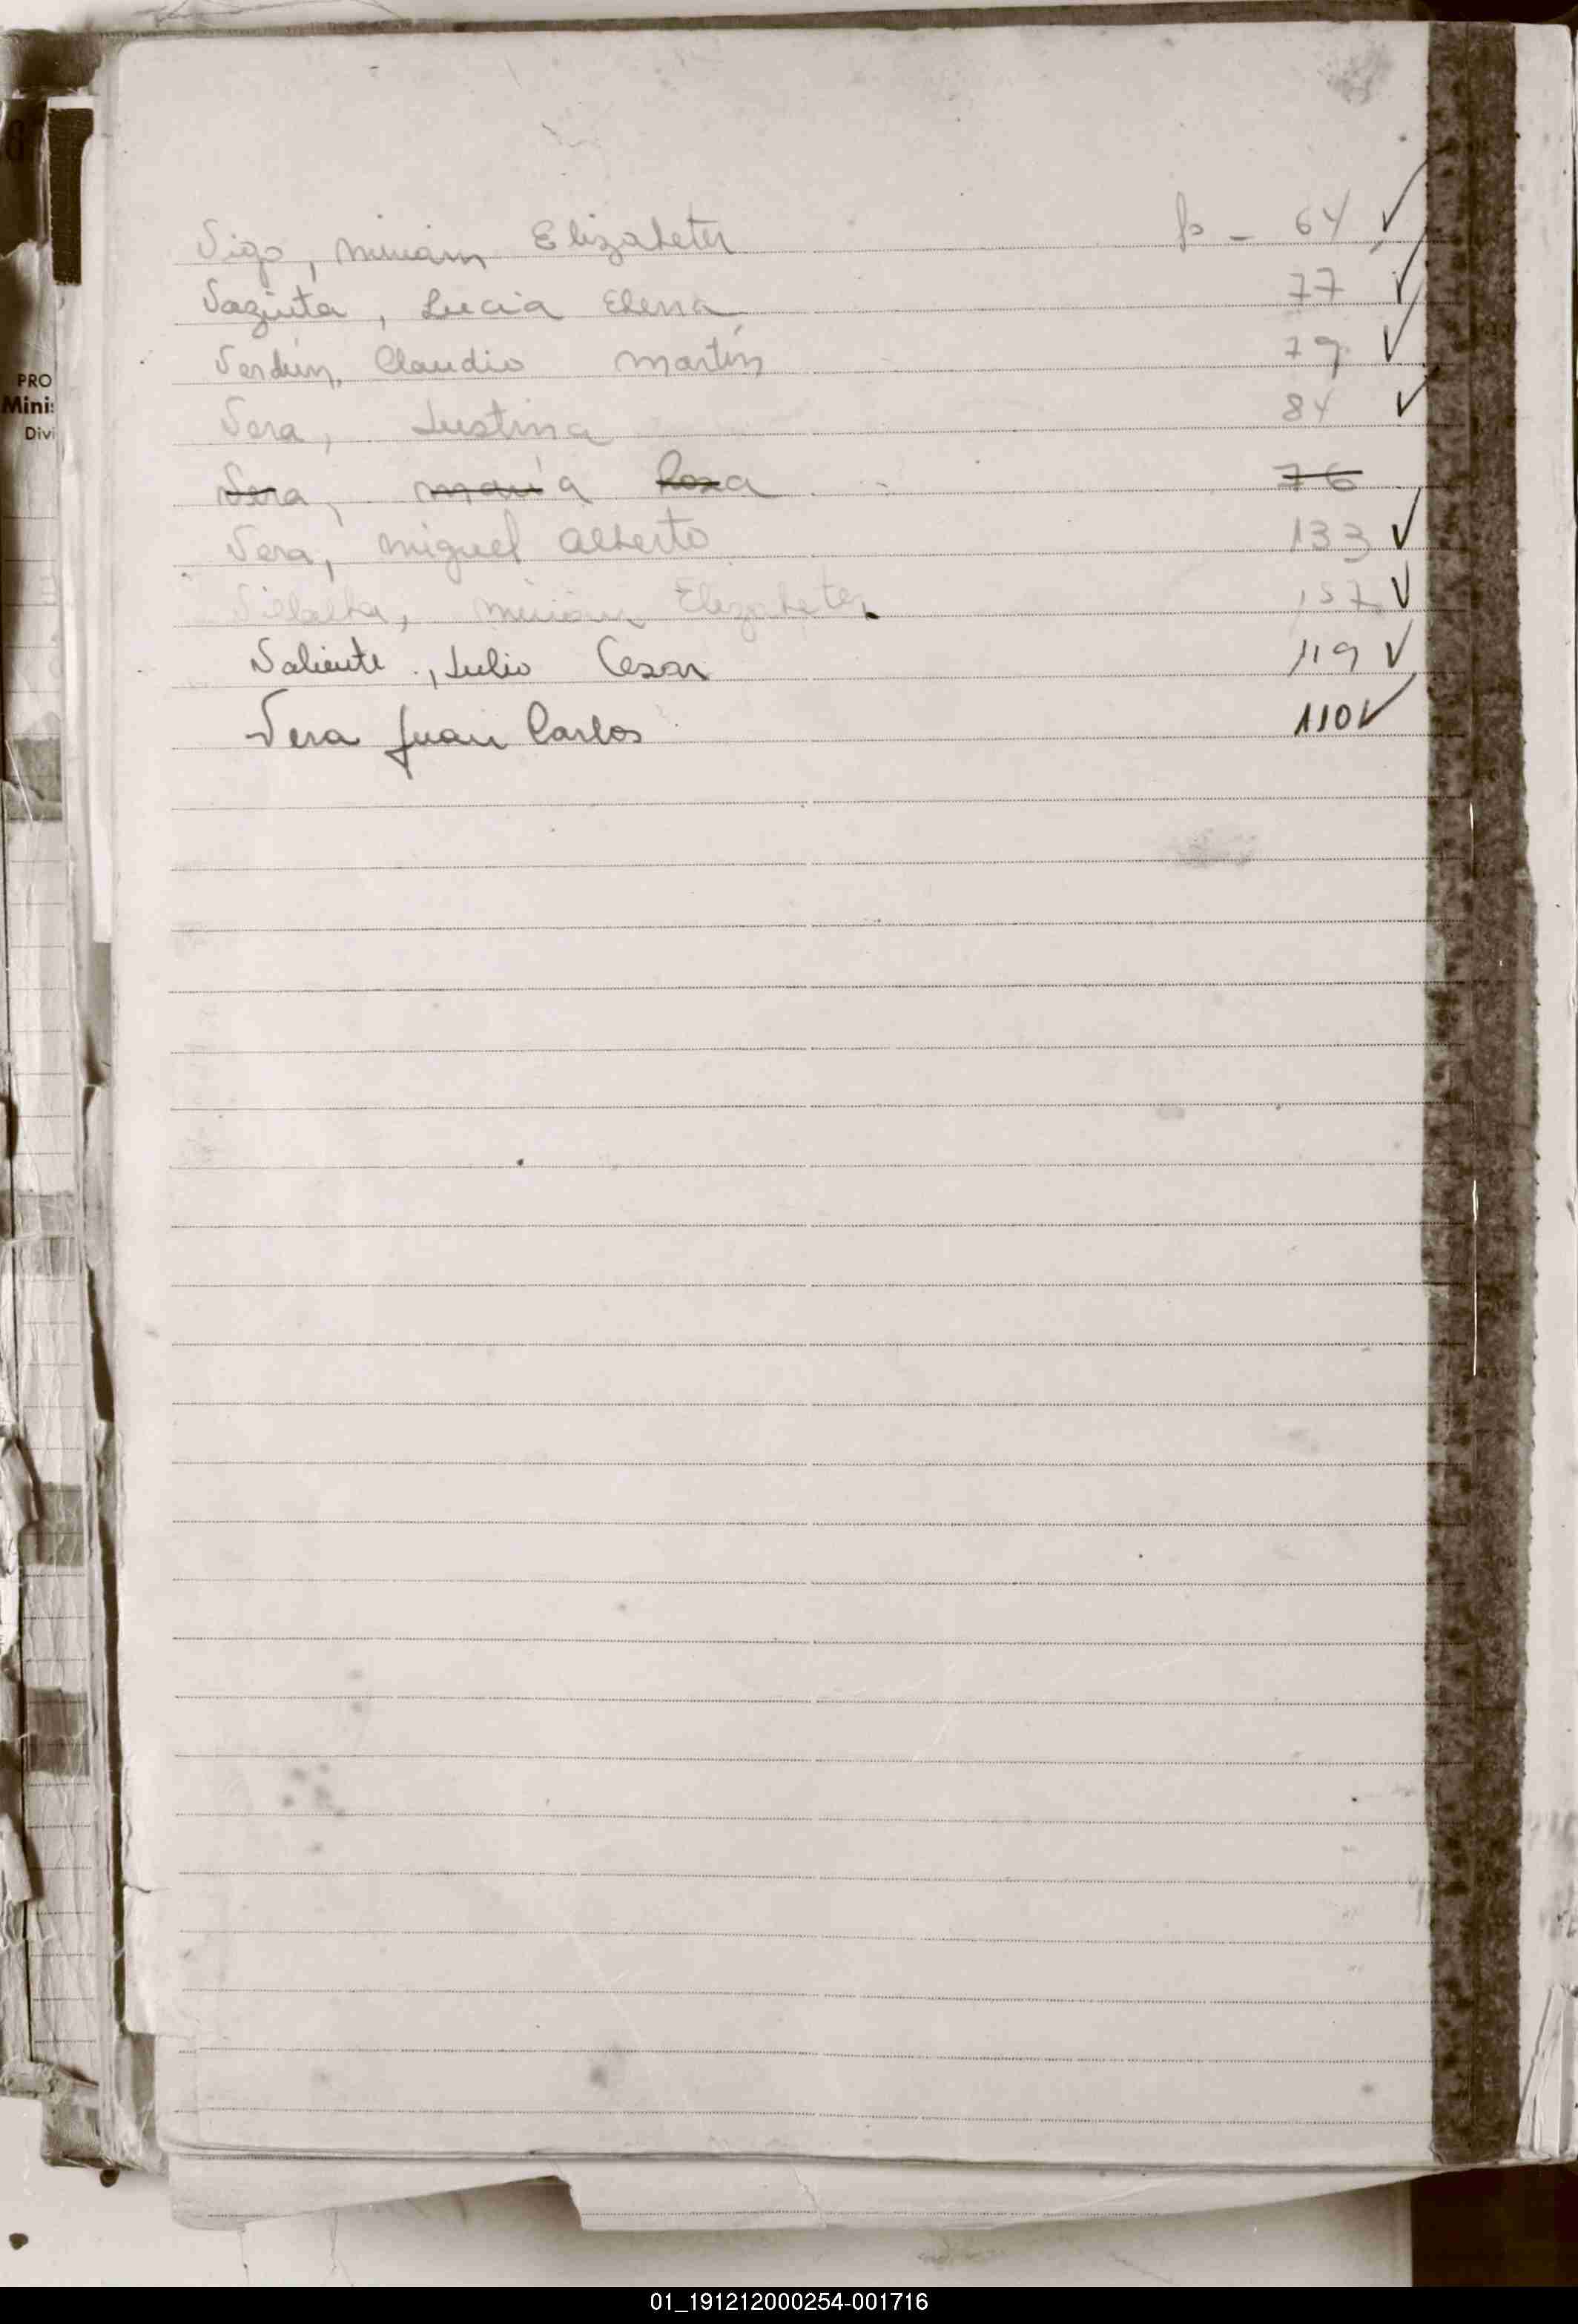 Vigo, Miriam Elizabeter fs - 64 ✓
Vaziuta, Lucia Elena 77 ✓
Verdún, Claudio Martín 79 ✓
Vera, Justina 84 ✓
Vera, María Rosa 76
Vera, Miguel Alberto 133 ✓
Villalba, Miriam Elizabeter 157 ✓
Valiente, Julio Cesar 119 ✓
Vera Juan Carlos 110 ✓
PRO
Minis
Divi
01_191212000254-001716